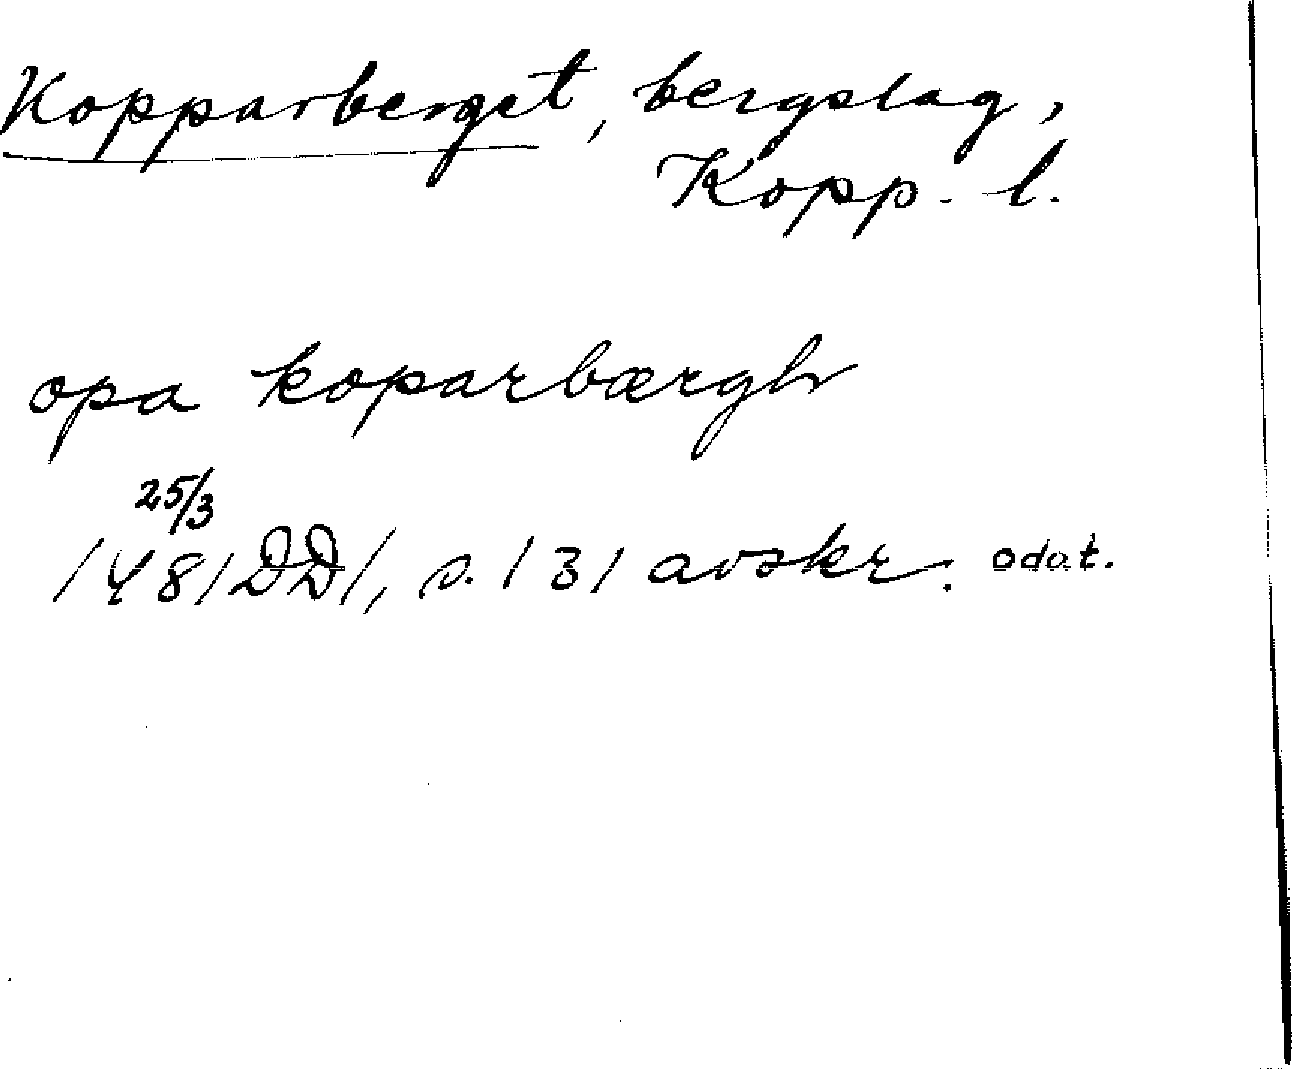 Kopparberget, bergslag,
Kopp. l.
opa koparbærgh
25/3
1481 DD 1, s. 131 avskr. odat.